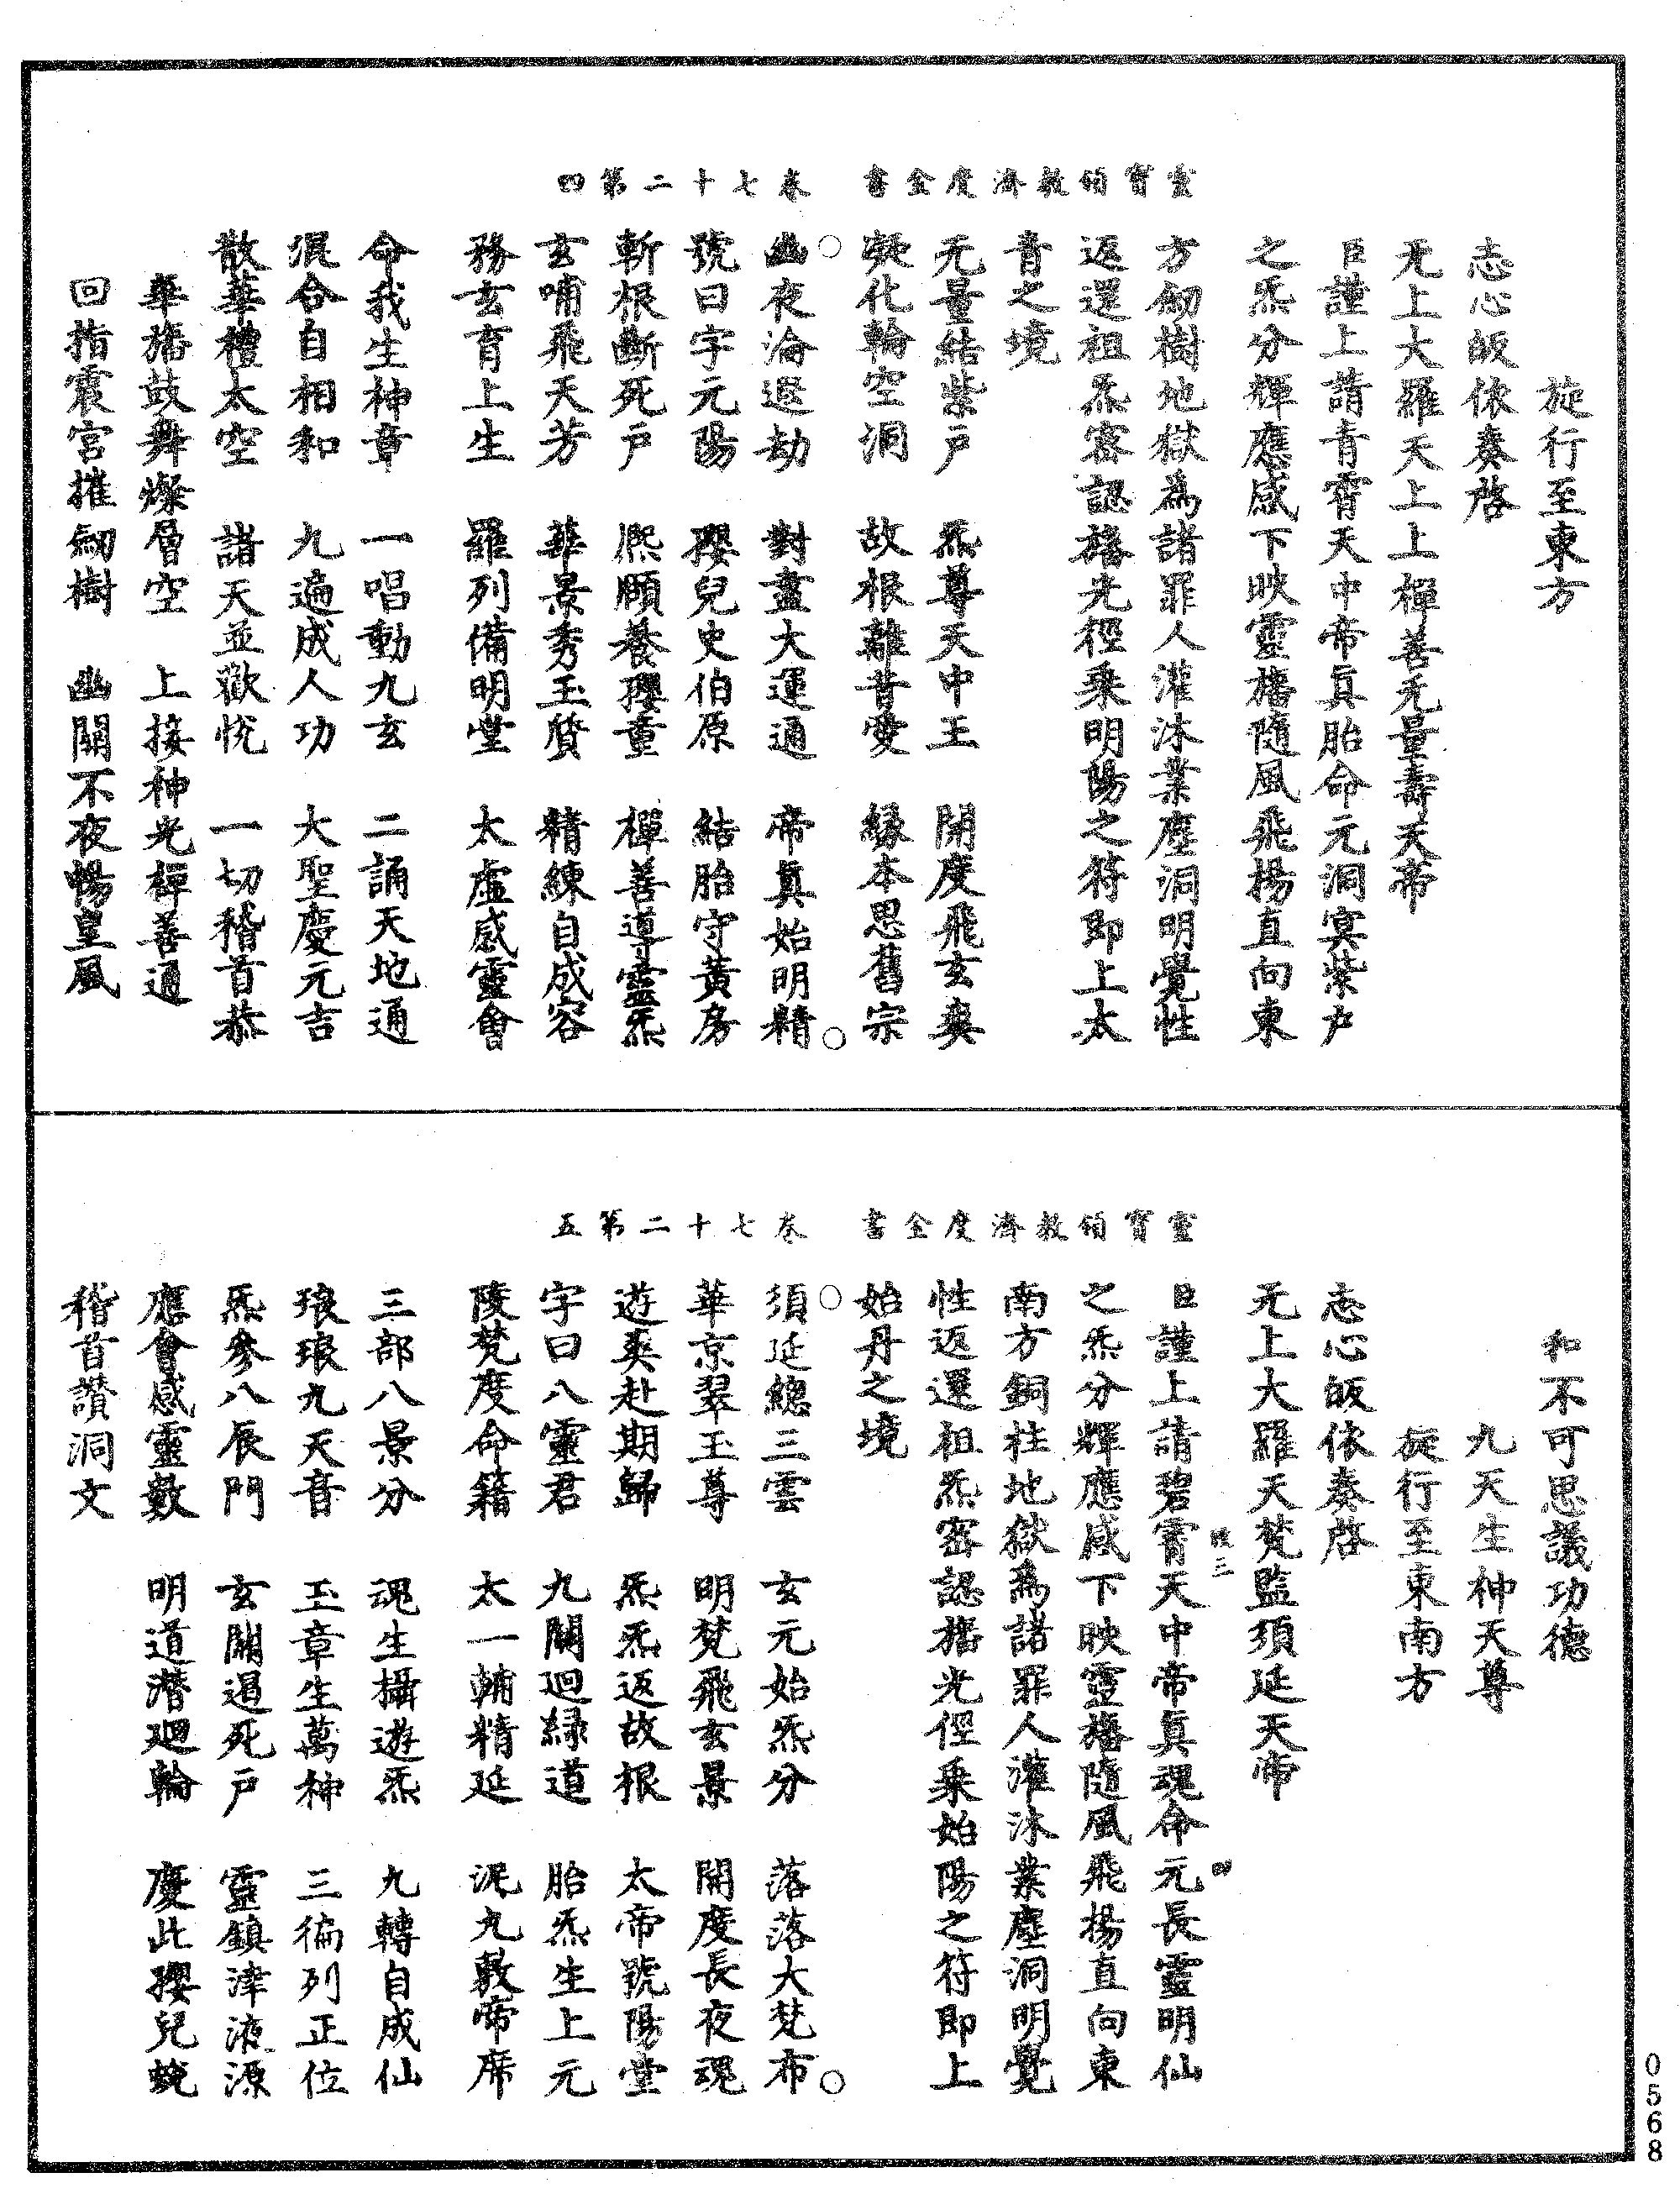 靈寶領教濟度金書　卷七十二第四
旋行至東方
志心皈依奏啓
无上大羅天上上禪善无量壽天帝
臣謹上請青霄天中帝真胎命元洞冥紫户
之炁分輝應感下映靈旛隨風飛揚直向東
方劒樹地獄爲諸罪人灌沐業塵洞明覺性
返還祖炁密認旛光徑乗明陽之符即上太
青之境
无量結紫户　炁尊天中王　開度飛玄爽
凝化輪空洞　故根離昔愛　緣本思舊宗
○幽夜淪遐劫　對盡大運通　帝真始明精○
號曰字元陽　瓔兒史伯原　結胎守黃房
斬根斷死户　熙頤養瓔童　禪善導靈炁
玄哺飛天芳　華景秀玉質　精練自成容
務玄育上生　羅列備明堂　太虛感靈會
命我生神章　一唱動九玄　二誦天地通
混合自相和　九遍成人功　大聖慶元吉
散華禮太空　諸天並歡悅　一切稽首恭
華旛鼓舞燦層空　上接神光禪善通
回指震宮摧劒樹　幽關不夜暢皇風
靈寶領教濟度金書　卷七十二第五
和不可思議功德
九天生神天尊
旋行至東南方
志心皈依奏啓
元上大羅天梵監須延天帝
臣謹上請碧霄天中帝真魂命元長靈明仙
之炁分輝應感下映靈旛隨風飛揚直向東
南方銅柱地獄爲諸罪人灌沐業塵洞明覺
性返還祖炁密認旛光徑乗始陽之符即上
始丹之境
○須延總三雲　玄元始炁分　落落大梵布○
華京翠玉尊　明梵飛玄景　開度長夜魂
遊爽赴期歸　炁炁返故根　太帝號陽堂
字曰八靈君　九關迴綠道　胎炁生上元
陵梵度命籍　太一輔精延　泥丸敷帝席
三部八景分　魂生攝遊炁　九轉自成仙
琅琅九天音　玉章生萬神　三徧列正位
炁參八辰門　玄關遏死户　靈鎮津液源
應會感靈數　明道潛迴輪　慶此瓔兒蛻
稽首讚洞文
0568